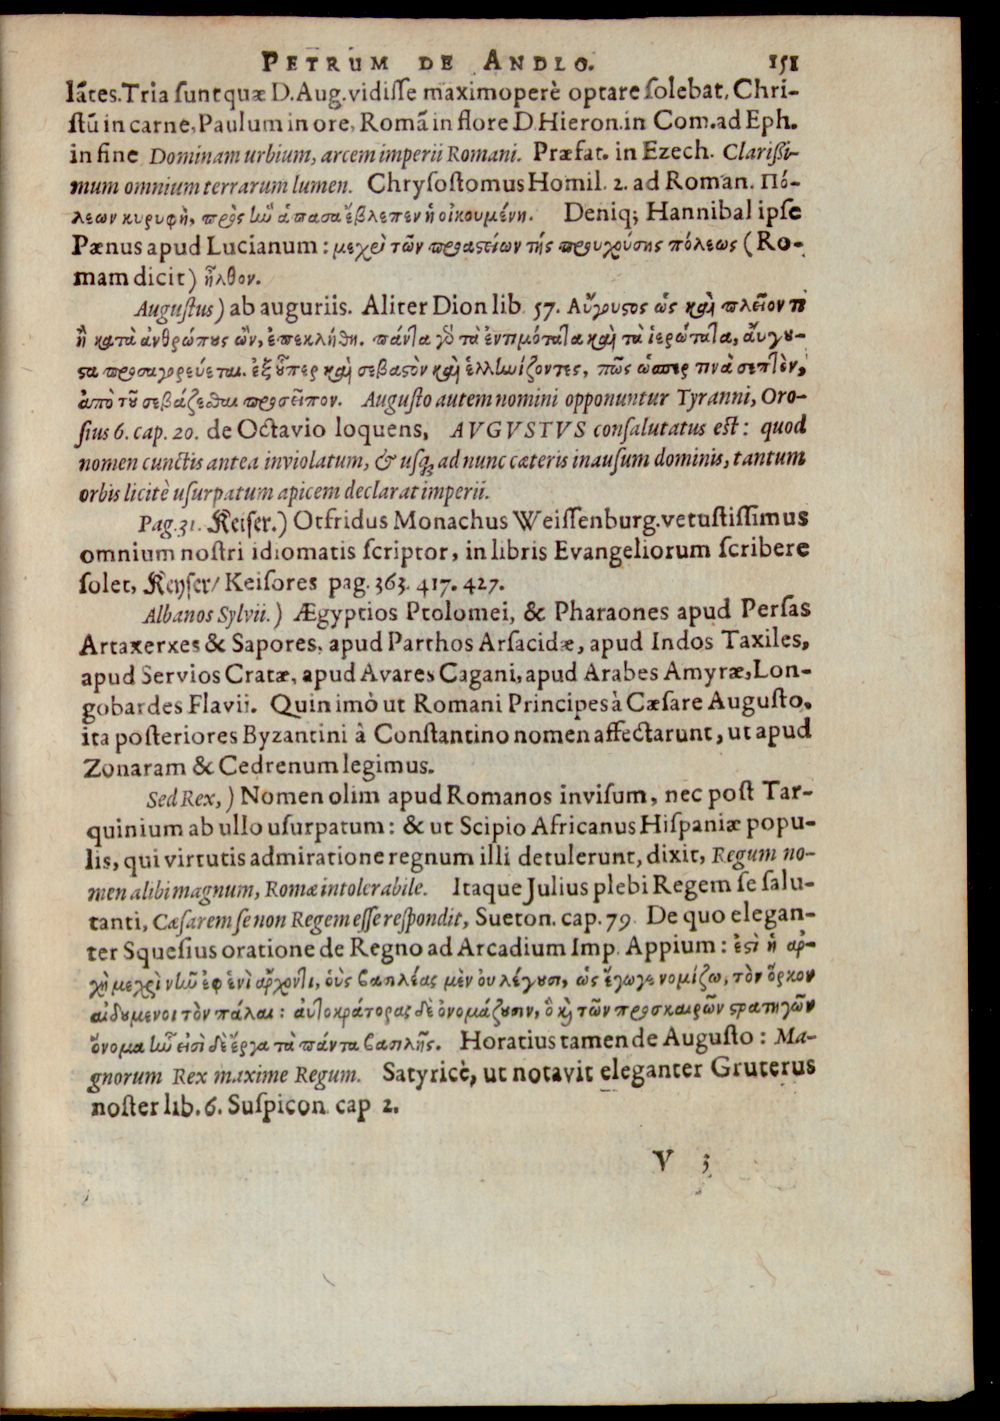 PETRUM DE ANDLO. 151
lātes. Tria ſunt quæ D. Aug. vidiſſe maximoperè optare ſolebat, Chri-
ſtū in carne, Paulum in ore, Romā in flore D. Hieron. in Com. ad Eph.
in fine Dominam urbium, arcem imperii Romani. Præfat. in Ezech. Clariſſi-
mum omnium terrarum lumen. Chryſoſtomus Homil. 2. ad Roman. Πό-
λεων κυρυφὴ, πρὸς ἣν ἁπασα ἔβλεπεν ἡ οἰκουμένη. Deniq; Hannibal ipſe
Pænus apud Lucianum: μεχρὶ τῶν προαστείων τῆς προυχούσης πόλεως (Ro-
mam dicit) ἦλθον.
Auguſtus) ab auguriis. Aliter Dion lib. 57. Αὔγουστος ὡς καὶ πλεῖον τι
ἢ κατὰ ἀνθρώπους ὢν, ἐπεκλήθη. πάντα γὸ τὰ ἐντιμότατα καὶ τὰ ἱερώτατα, ἄυγου-
στα προσαγορεύεται. ἐξ οὗπερ καὶ σεβαστὸν καὶ ἑλληνίζοντες, πῶς ὥσπερ τινὰ σεπτὸν,
ἀπὸ τοῦ σεβάζεσθαι προσεῖπον. Auguſto autem nomini opponuntur Tyranni, Oro-
ſius 6. cap. 20. de Octavio loquens, AVGVSTVS conſalutatus eſt: quod
nomen cunctis antea inviolatum, & uſq; ad nunc cæteris inauſum dominis, tantum
orbis licitè uſurpatum apicem declarat imperii.
Pag. 31. Keiſer.) Otfridus Monachus Weiſſenburg. vetuſtiſſimus
omnium noſtri idiomatis ſcriptor, in libris Evangeliorum ſcribere
ſolet, Keyſer/ Keiſores pag. 363. 417. 427.
Albanos Sylvii.) Ægyptios Ptolomei, & Pharaones apud Perſas
Artaxerxes & Sapores, apud Parthos Arſacidæ, apud Indos Taxiles,
apud Servios Cratæ, apud Avares Cagani, apud Arabes Amyræ, Lon-
gobardes Flavii. Quin imò ut Romani Principes à Cæſare Auguſto,
ita poſteriores Byzantini à Conſtantino nomen affectarunt, ut apud
Zonaram & Cedrenum legimus.
Sed Rex,) Nomen olim apud Romanos inviſum, nec poſt Tar-
quinium ab ullo uſurpatum: & ut Scipio Africanus Hiſpaniæ popu-
lis, qui virtutis admiratione regnum illi detulerunt, dixit, Regum no-
men alibi magnum, Romæ intolerabile. Itaque Julius plebi Regem ſe ſalu-
tanti, Cæſarem ſe non Regem eſſe reſpondit, Sueton. cap. 79. De quo elegan-
ter Sqneſius oratione de Regno ad Arcadium Imp. Appium: ἐστὶ ἡ αρ-
χὴ μεχρὶ νῦν ἐφ ἑνὶ ἄρχοντι, οὑς βασιλέας μὲν ου λέγουσι, ὡς ἔγωγε νομίζω, τὸν ὅρκον
αιδουμενοι τὸν πάλαι: αὐτοκράτορας δὲ ονομάζουσιν, ὁ κὶ τῶν προσκαιρῶν στρατηγῶν
ὄνομα ἦν εἰσὶ δὲ ἔργα τὰ πάντα βασιλῆς. Horatius tamen de Auguſto: Ma-
gnorum Rex maxime Regum. Satyricè, ut notavit eleganter Gruterus
noſter lib. 6. Suſpicon. cap 2.
V 3